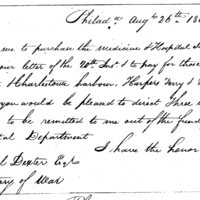 Philad.ª Aug.t 26th 180
me to purchase the medicine & Hospital
our letter of the 20th Inst. & to pay for those
t Charlestown harbour. Harpers Ferry &
you would be pleased to direct Three
to be remitted to me out of the fund
cal Department
I have the honor
l Dexter Esq.
ary of War